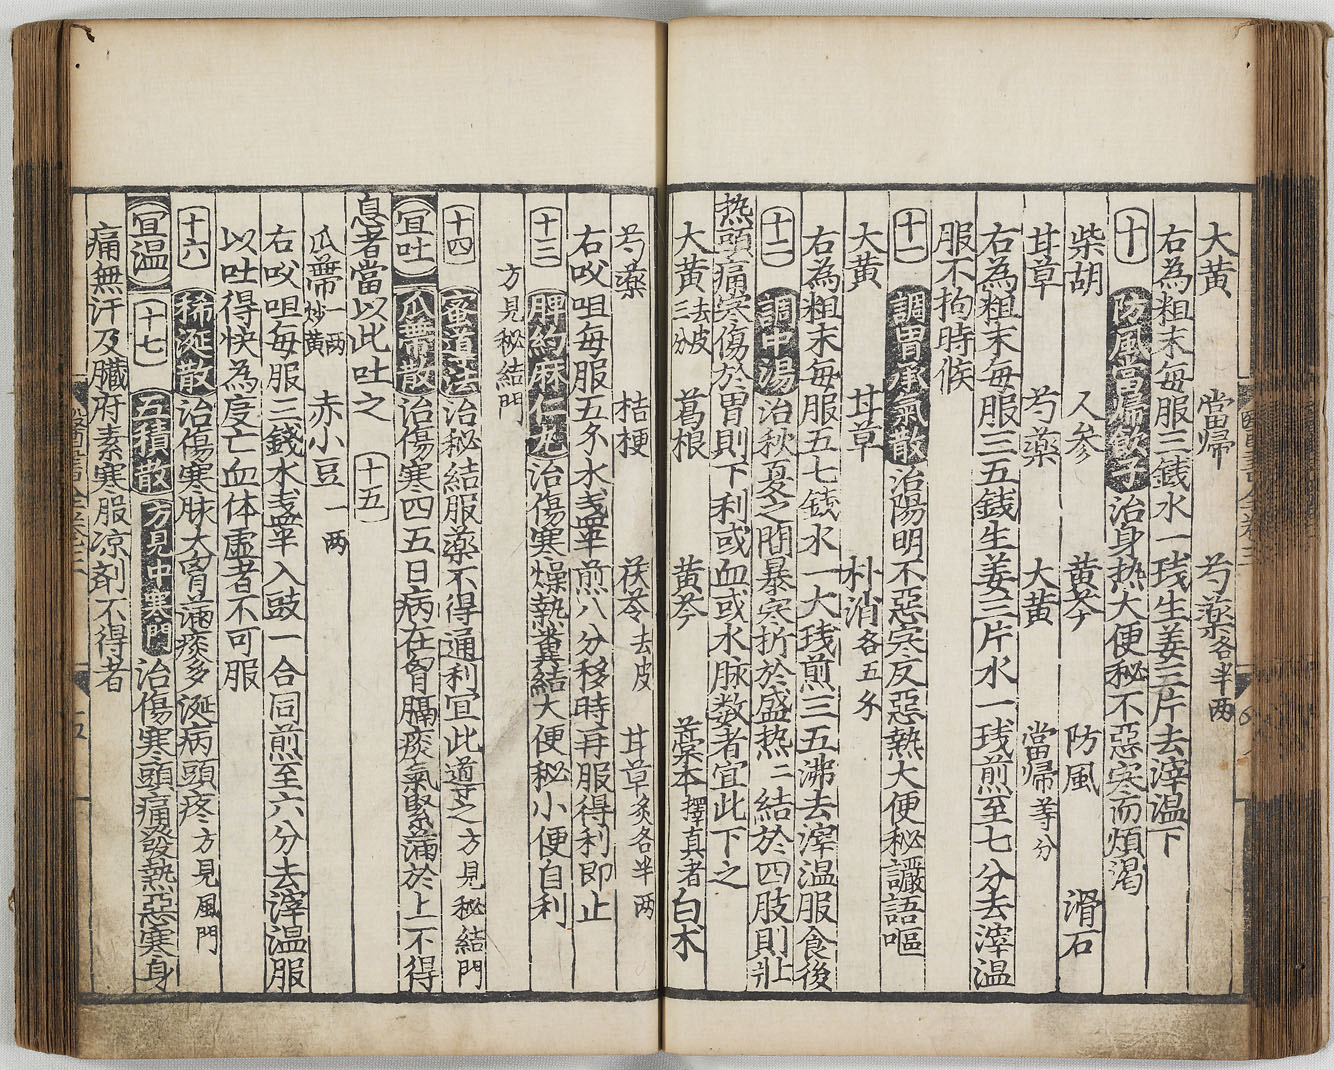 大黄 當歸 芍薬各半两
右為粗末每服三銭水一㦮生姜三片去滓温下
十 防風當歸飲子 治身热大便秘不惡寒而煩渴
柴胡 人参 黄芩 防風 滑石
甘草 芍薬 大黄 當歸等分
右為粗末每服三五銭生姜三片水一㦮煎至七分去滓温
服不拘時候
十一 調胃承氣散 治陽明不惡寒反惡熱大便秘讝語嘔
大黄 甘草 朴消各五分
右為粗末每服五七銭水一大㦮煎三五沸去滓温服食後
十二 調中湯 治秋夏之間暴寒折於盛热二結於四肢則壯
热頭痛寒傷於胃則下利或血或水脉数者宜此下之
大黄去皮三分 葛根 黄芩 藁本擇真者 白术
芍藥 桔梗 茯苓去皮 甘草炙各半两
右㕮咀每服五分水盏半煎八分移時再服得利即止
十三 脾約麻仁丸 治傷寒燥熱糞結大便秘小便自利
方見秘結門
十四 蜜道法 治秘結服薬不得通利宜此導之方見秘結門
宜吐 瓜蒂散 治傷寒四五日病在胷膈痰氣緊滿於上不得
息者當以此吐之 十五
瓜蒂一两炒黄 赤小豆一两
右㕮咀每服三錢水盏半入豉一合同煎至六分去滓温服
以吐得快為度亡血体虚者不可服
十六 稀涎散 治傷寒脉大胷滿痰多涎病頭疼方見風門
宜温 十七 五積散 方見中寒門 治傷寒頭痛發熱惡寒身
痛無汗及臓府素寒服凉剤不得者